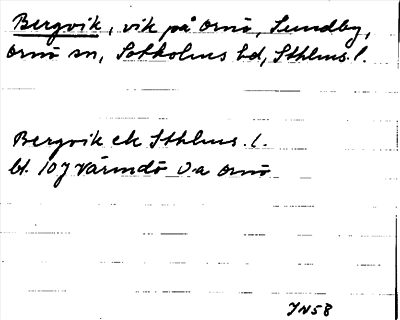 Bergvik, vik på Ornö, Sundby,
Ornö sn, Sotholms hd, Sthlms. l.
Bergvik ek Sthlms. l.
bl. 10J Värmdö Va Ornö
JN58